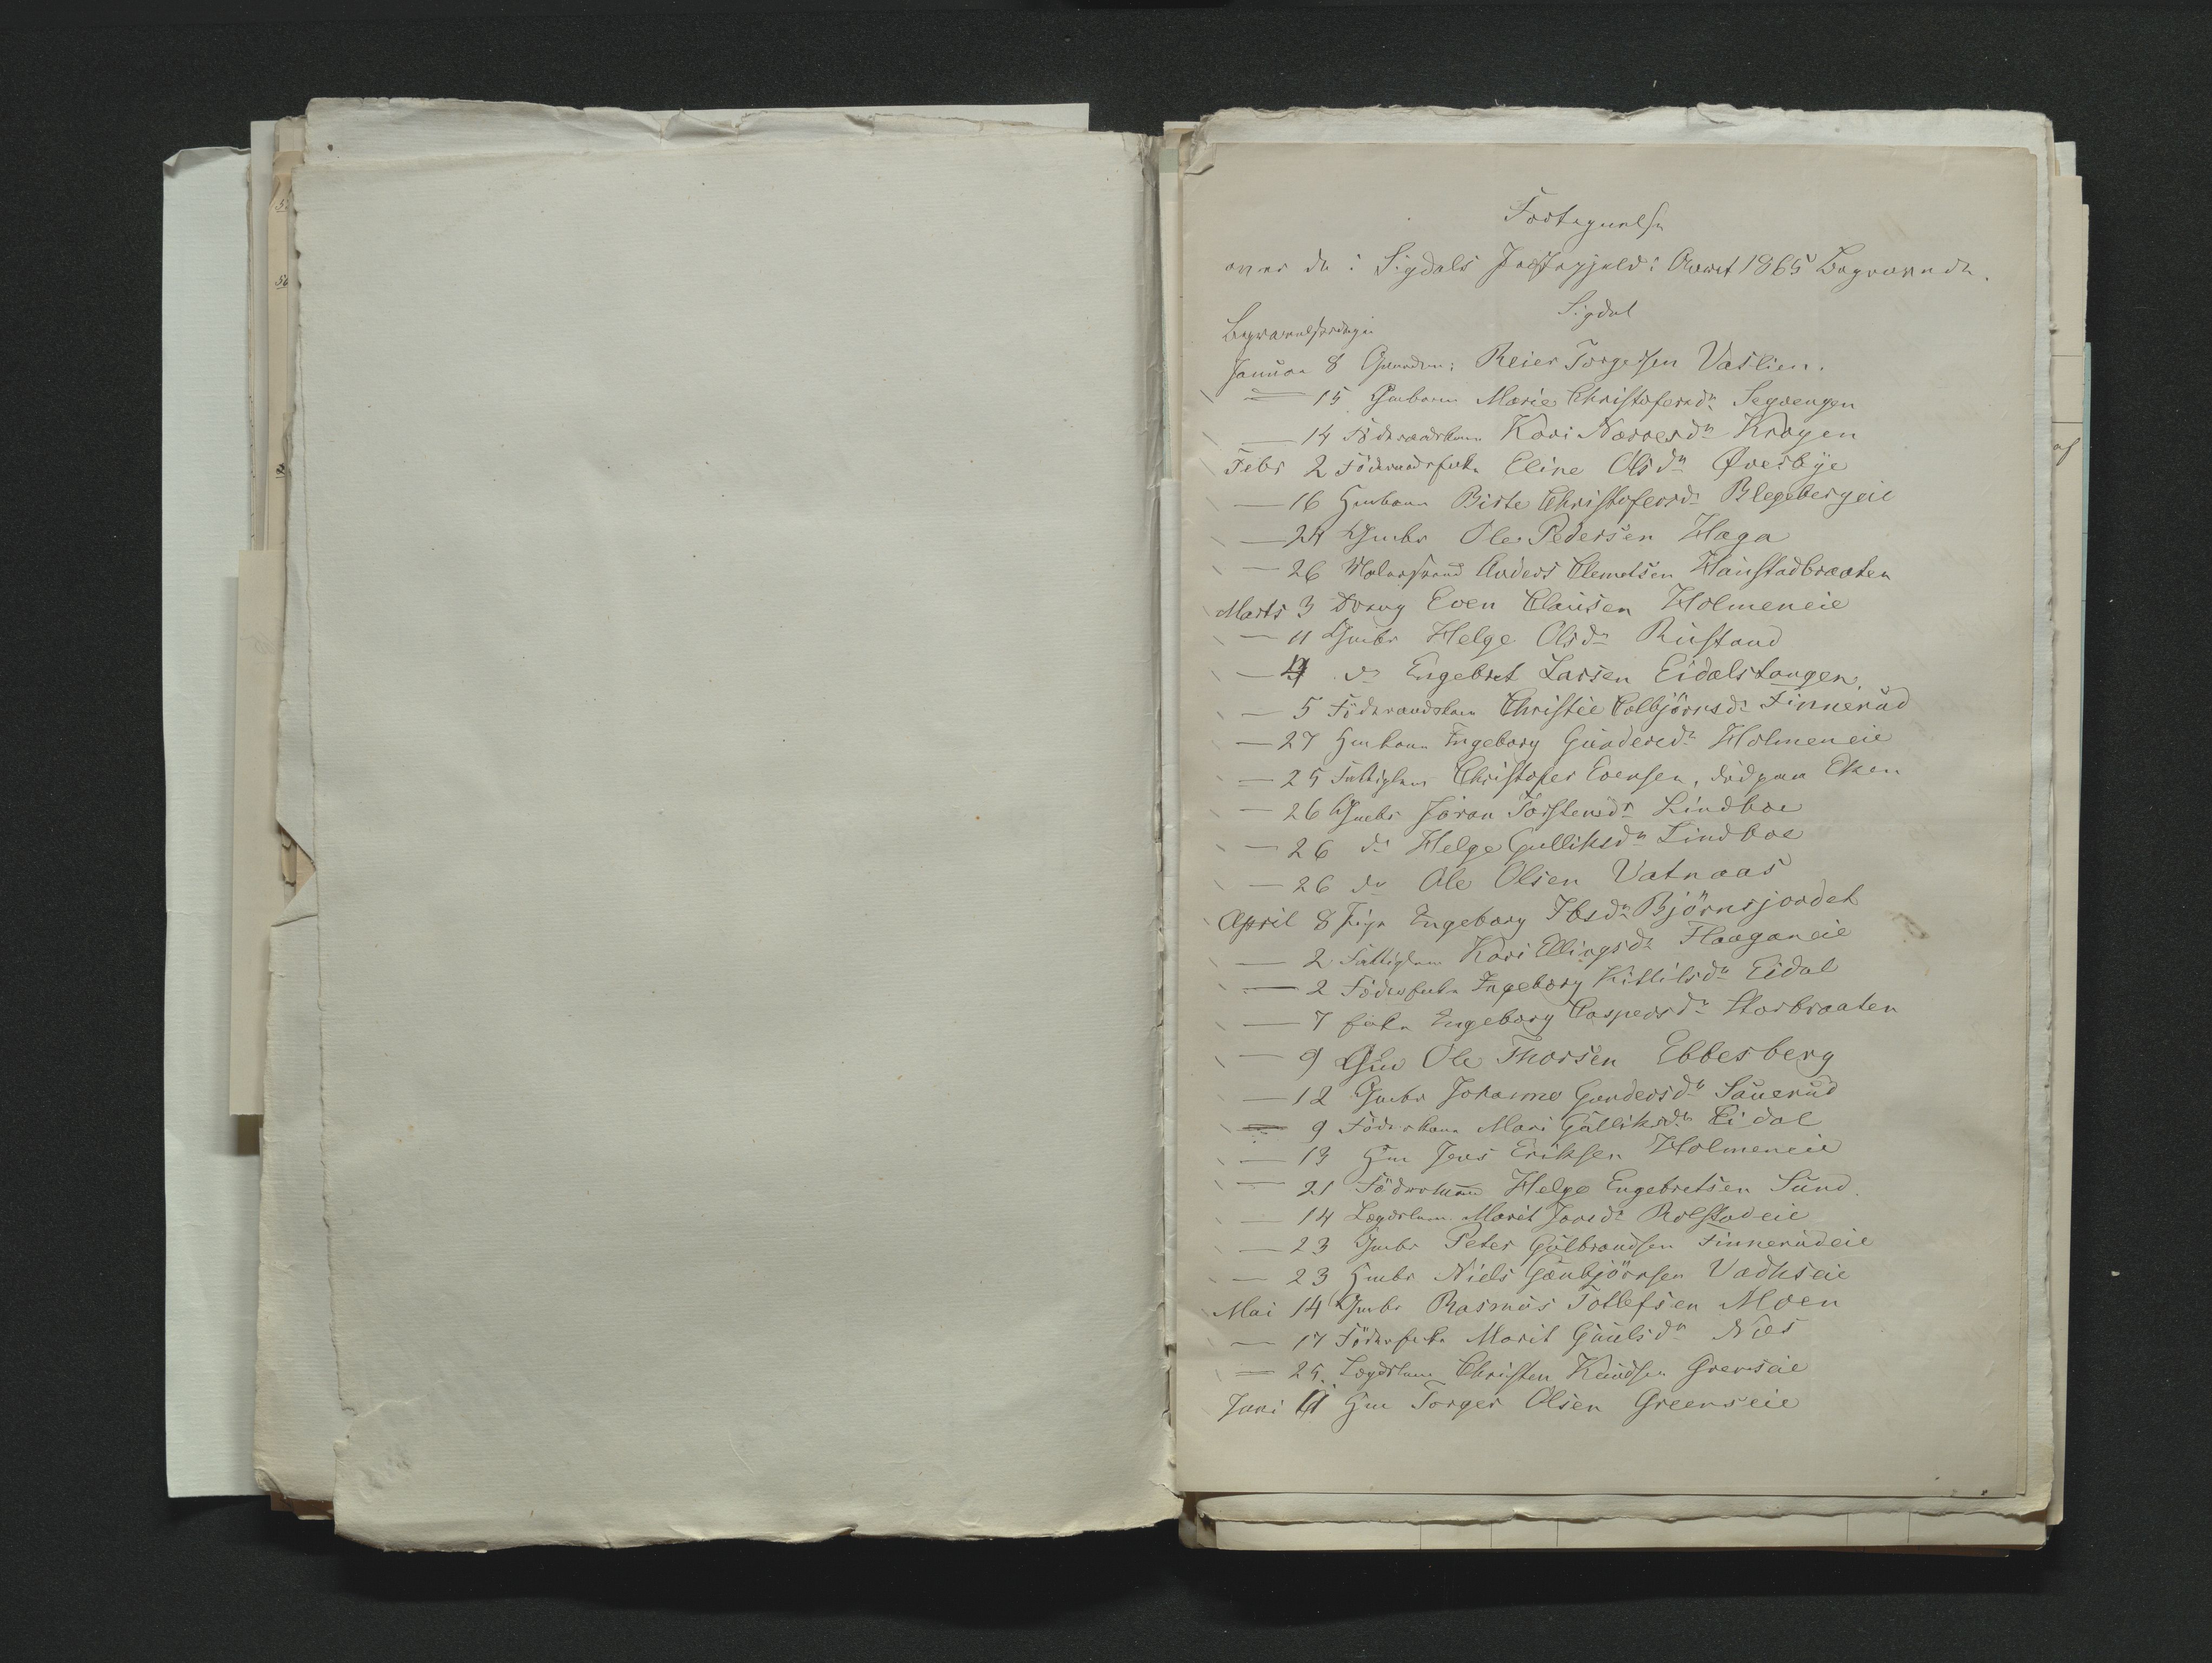 Fortegnelse
over de i Sigdals Præstegjeld i Aaret 1865 Begravede.
Sigdal
Begravelsesdagen
Januar 8 Gaardm: Reier Torgersen Vaslien.
— 15 Gmbarn Marie Christofersdr Segvengen
— 14 Föderaadskone Kari Narvesdr Krogen
Febr 2 Föderaadsenke Eline Olsdr Øverbye
— 16 Hmbarn Birte Christofersdr Blegebergeie
— 24 Gmbr Ole Pedersen Haga
— 26 Anders Clemetsen Haustadbraaten
Marts 3 Dreng Even Clausen Holmeneie
— 11 Gmbr Helge Olsdr Rustand
— do Engebret Larsen Eidalstangen.
— 5 Föderaadskone Christie Colbjörnsdr Finnerud
— 27 Hmbarn Ingeborg Gundersdr Holmeneie
— 25 Fattiglem Christofer Evensen, död paa Eken
— 26 Gmbr Jöran Torstensdr Lindboe
— 26 do Helge Gulliksdr Lindboe
— 26 do Ole Olsen Vatnaas
April 8 Pige Engeborg Ibsdr Björnsjordet
— 2 Fattiglem Kari Ellingsdr Haaganeie
— 2 Födrsenke Ingeborg Kittilsdr Eidal
— 7 Enke Engeborg Caspersdr Storbraaten
— 9 Gm Ole Thorsen Ebbesberg
— 12 Gmbr Johanne Gundersdr Sauerud
— 9 Föderskone Mari Gulliksdr Eidal
— 13 Hm Jens Eriksen Holmeneie
— 21 Födrsmand Helge Engebretsen Sund.
— 14 Lægdslem Marit Jonsdr Rolstadeie
— 23 Gmbr Peter Gulbrandsen Finnerudeie
— 23 Hmbr Niels Gunbjörnsen Vadhseie
Mai 14 Gmbr Rasmus Tollefsen Moen
— 17 Födrsenke Marit Gaulsdr Næs
— 25. Lægdslem Christen Knudsen Grenseie
Juni 11 Hm Torger Olsen Greenseie